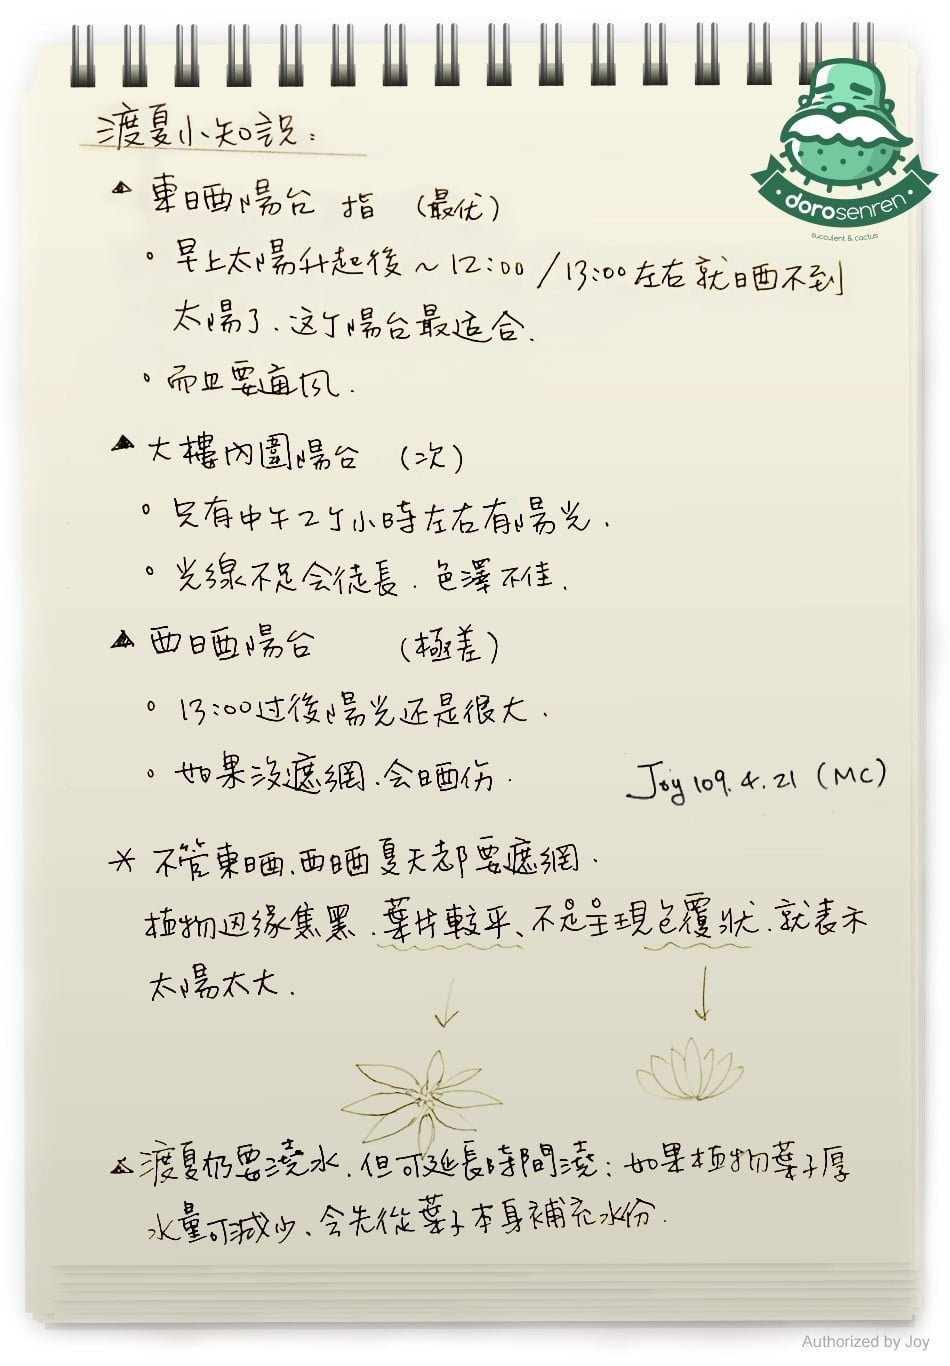 渡夏小知识:
▲ 東晒陽台 指 (最优)
。早上太陽升起後~12:00/13:00左右就晒不到
太陽了、这个陽台最适合.
。而且要通风.
▲ 大樓內圍陽台 (次)
。只有中午2个小時左右有陽光.
。光線不足会徒長、色澤不佳.
▲ 西晒陽台 (極差)
。13:00过後陽光还是很大.
。如果沒遮網、会晒伤.
Joy 109.4.21 (MC)
* 不管東晒、西晒夏天都要遮網.
植物边缘焦黑、葉片較平、不是呈現包覆狀、就表示
太陽太大.
▲ 渡夏仍要澆水、但可延長時間澆; 如果植物葉子厚
水量可減少、会先從葉子本身補充水份.
dorosenren
succulent & cactus
Authorized by Joy